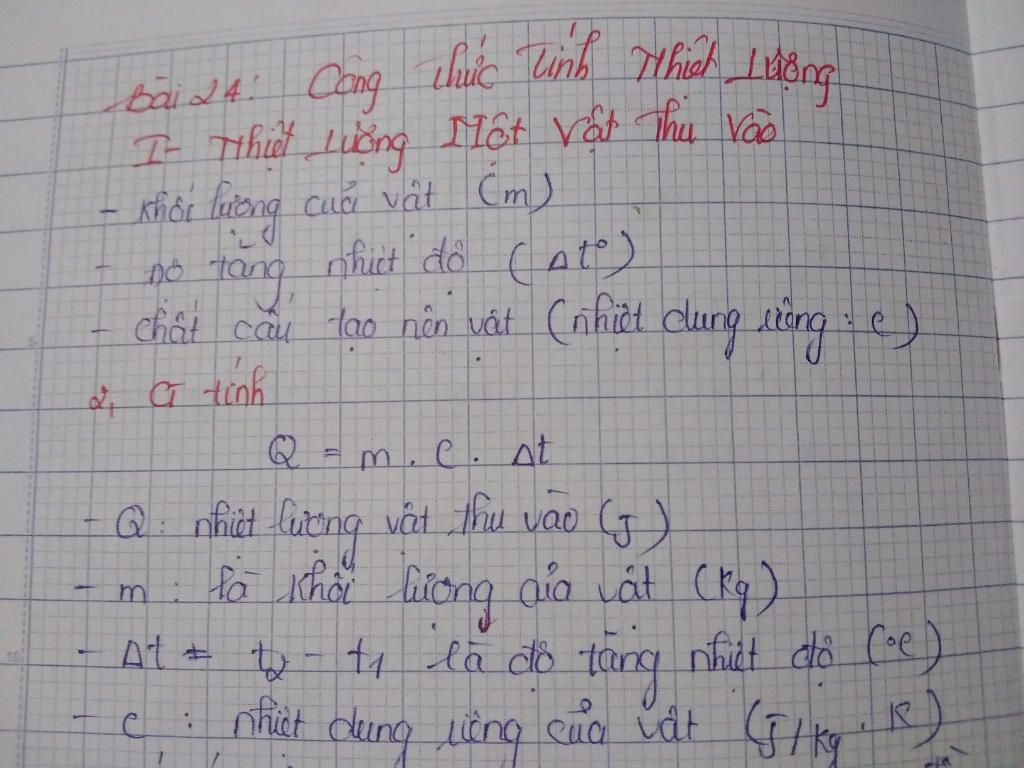 Bài 24: Công thức tính Nhiệt Lượng
I- Nhiệt Lượng Một Vật Thu Vào
- Khối lượng của vật (m)
- Độ tăng nhiệt độ (Δt°)
- chất cấu tạo nên vật (nhiệt dung riêng: c)
2, CT tính
Q = m . c . Δt
- Q: nhiệt lượng vật thu vào (J)
- m : là khối lượng của vật (kg)
- Δt = t2 - t1 là độ tăng nhiệt độ (°C)
- c : nhiệt dung riêng của vật (J/kg . K)